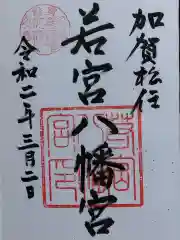 加賀松任
若宮八幡宮
令和二年三月二日